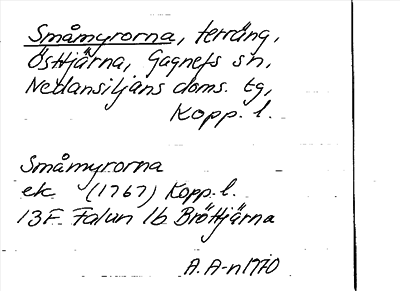 Småmyrorna, terräng,
Östtjärna, Gagnefs sn,
Nedansiljans doms. tg,
Kopp. l.
Småmyrorna
ek (1767) Kopp. l.
13F Falun 1b Bröttjärna
A. A-n 1970